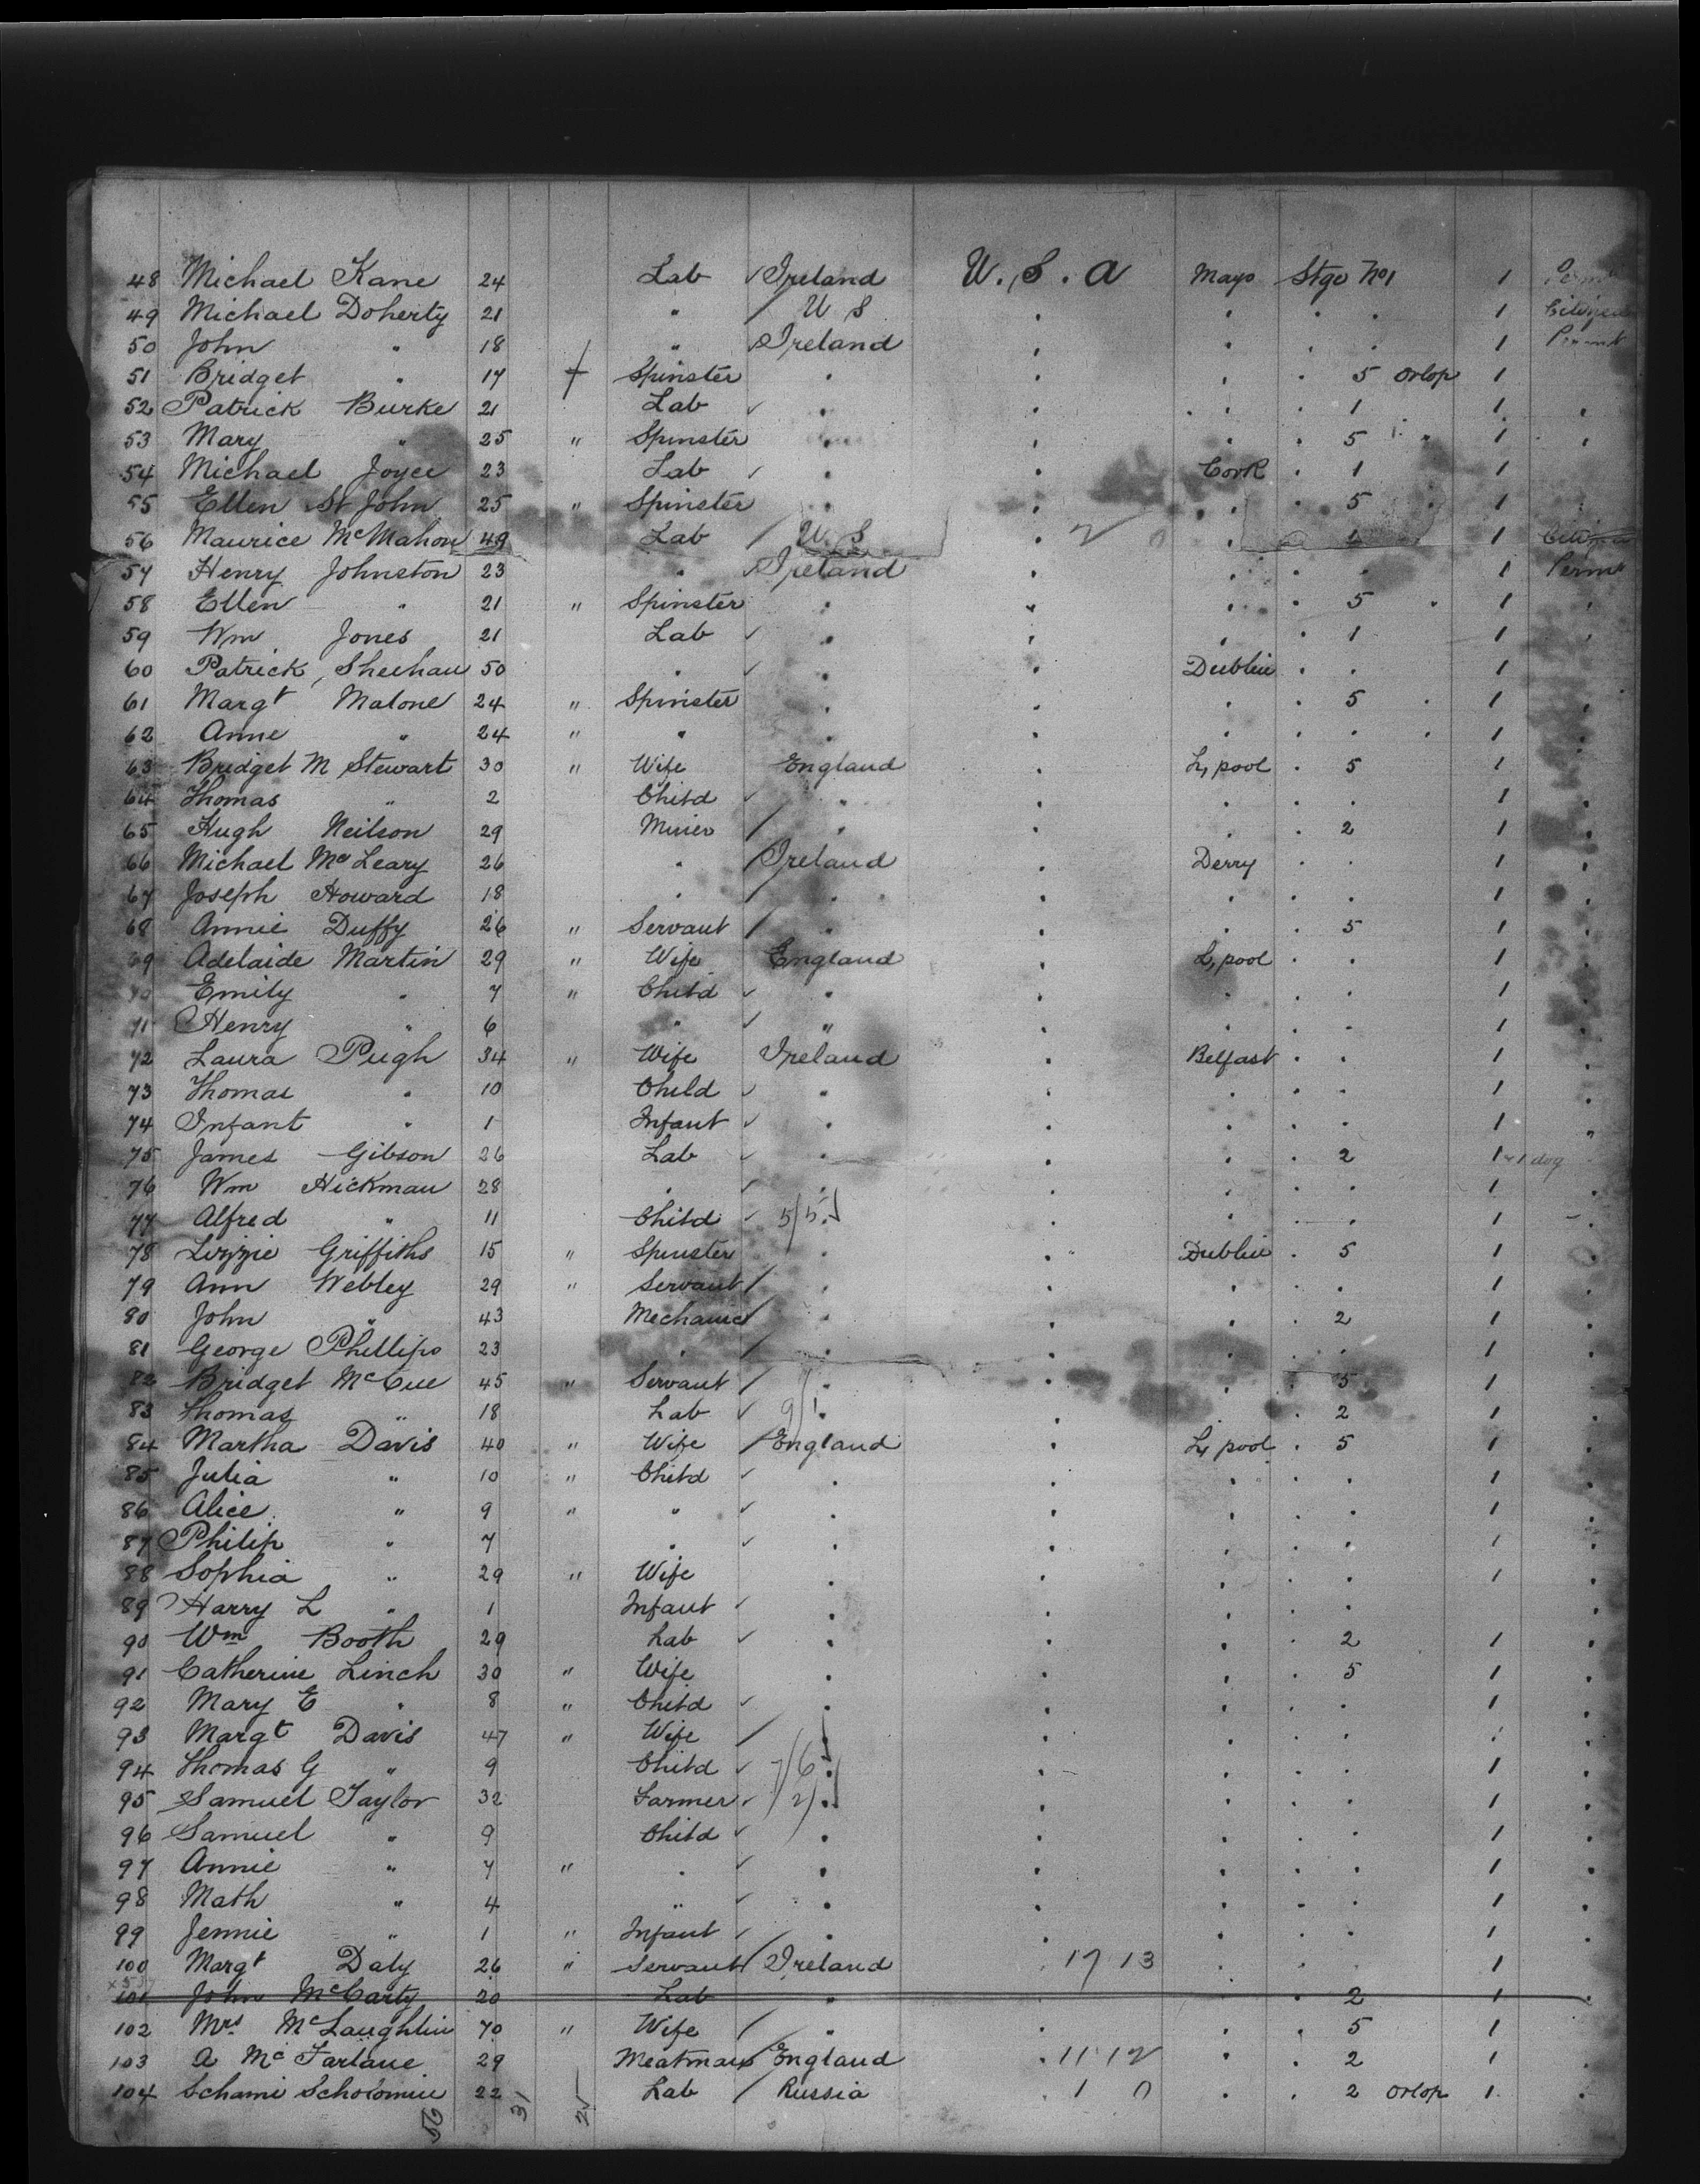 48 Michael Kane 24 Lab ✓ Ireland U. S. A Mayo Stge No 1 1
49 Michael Doherty 21 " / U S . . . . 1 Citizen
50 John " 18 " ✓ Ireland . . . . 1 Permt
51 Bridget " 17 + Spinster . . . . 5 Orlop 1
52 Patrick Burke 21 Lab ✓ . . . . 1 1 .
53 Mary " 25 " Spinster . . . . 5 " 1 .
54 Michael Joyce 23 Lab ✓ . . Cork . 1 1
55 Ellen St John 25 " Spinster . . . . 5 . 1 .
56 Maurice McMahon 49 Lab / U. S . . 1 1 Citizen
57 Henry Johnston 23 . ✓ Ireland . . . . 1 Permt
58 Ellen " 21 " Spinster . . . . 5 . 1 .
59 Wm Jones 21 Lab ✓ . . . . 1 1 .
60 Patrick Sheehan 50 . ✓ . . Dublin . . 1
61 Margt Malone 24 " Spinster . . . . 5 . 1 .
62 Anne " 24 " " . . . . . . 1 .
63 Bridget M Stewart 30 " Wife England . L,pool . 5 1 .
64 Thomas " 2 Child ✓ . . . . . 1 .
65 Hugh Neilson 29 Miner / . . . . 2 1 .
66 Michael McLeary 26 . / Ireland . Derry . . 1 .
67 Joseph Howard 18 . / . . . . . 1 .
68 Annie Duffy 26 " Servant / . . . . 5 1 .
69 Adelaide Martin 29 " Wife England . L,pool . . 1 .
70 Emily " 7 " Child ✓ . . . . . 1 .
71 Henry " 6 " ✓ " . . . . 1 .
72 Laura Pugh 34 " Wife Ireland . Belfast . . 1 .
73 Thomas " 10 Child ✓ . . . . . 1 .
74 Infant " 1 Infant ✓ . . . . . 1 .
75 James Gibson 26 Lab ✓ . . . . 2 1 + 1 dog
76 Wm Hickman 28 . ✓ . . . . . 1 .
77 Alfred " 11 Child ✓ 5/5 . . . . . 1 .
78 Lizzie Griffiths 15 " Spinster . . Dublin . 5 1 .
79 Ann Webley 29 " Servant / . . . . . 1 .
80 John " 43 Mechanic / . . . . 2 1 .
81 George Phillips 23 . / . . . . . 1 .
82 Bridget McCue 45 " Servant / . . . . 5 1 .
83 Thomas " 18 Lab ✓ 9/1 . . . . 2 1 .
84 Martha Davis 40 " Wife / England . L,pool . 5 1 .
85 Julia " 10 " Child ✓ . . . . . 1 .
86 Alice " 9 " " ✓ . . . . . 1 .
87 Philip " 7 . ✓ . . . . . 1 .
88 Sophia " 29 " Wife . . . . . 1 .
89 Harry L " 1 Infant ✓ . . . . . .
90 Wm Booth 29 Lab ✓ . . . . 2 1 .
91 Catherine Linch 30 " Wife . . . . 5 1 .
92 Mary E " 8 " Child ✓ . . . . . 1 .
93 Margt Davis 47 " Wife / . . . . . 1 .
94 Thomas G " 9 Child ✓ 7/6 . . . . . 1 .
95 Samuel Taylor 32 Farmer ✓ /2 . . . . . 1 .
96 Samuel " 9 Child ✓ . . . . . 1 .
97 Annie " 7 " . ✓ . . . . . 1 .
98 Math " 4 " ✓ . . . . . 1 .
99 Jennie " 1 " Infant ✓ . . . . . 1 .
100 Margt Daly 26 " Servant / Ireland . 17 13 . . . 1
101 John McCarty 20 Lab . . 2 1 .
102 Mrs McLaughlin 70 " Wife / " . . . 5 1
103 A McFarlane 29 Meatman / England . 11 12 . . 2 1 .
104 Schami Scholomin 22 Lab / Russia . 1 0 . . 2 Orlop 1 .
56 31 25